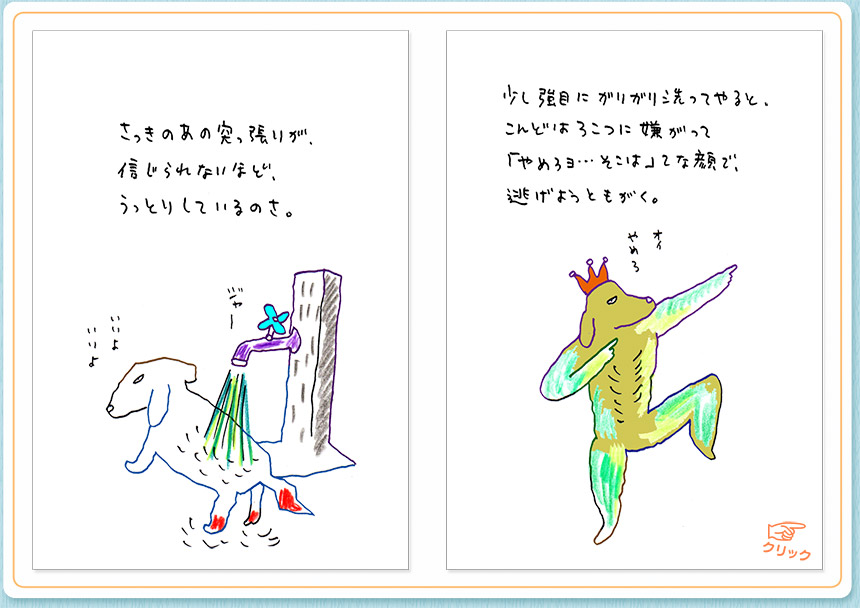 さっきのあの突っ張りが、
信じられないほど、
うっとりしているのさ。
ジャー
いいよ
いいよ
少し強目にガリガリ洗ってやると、
こんどはろこつに嫌がって
「やめろヨ…そこは」てな顔で、
逃げようともがく。
オイ
やめろ
クリック